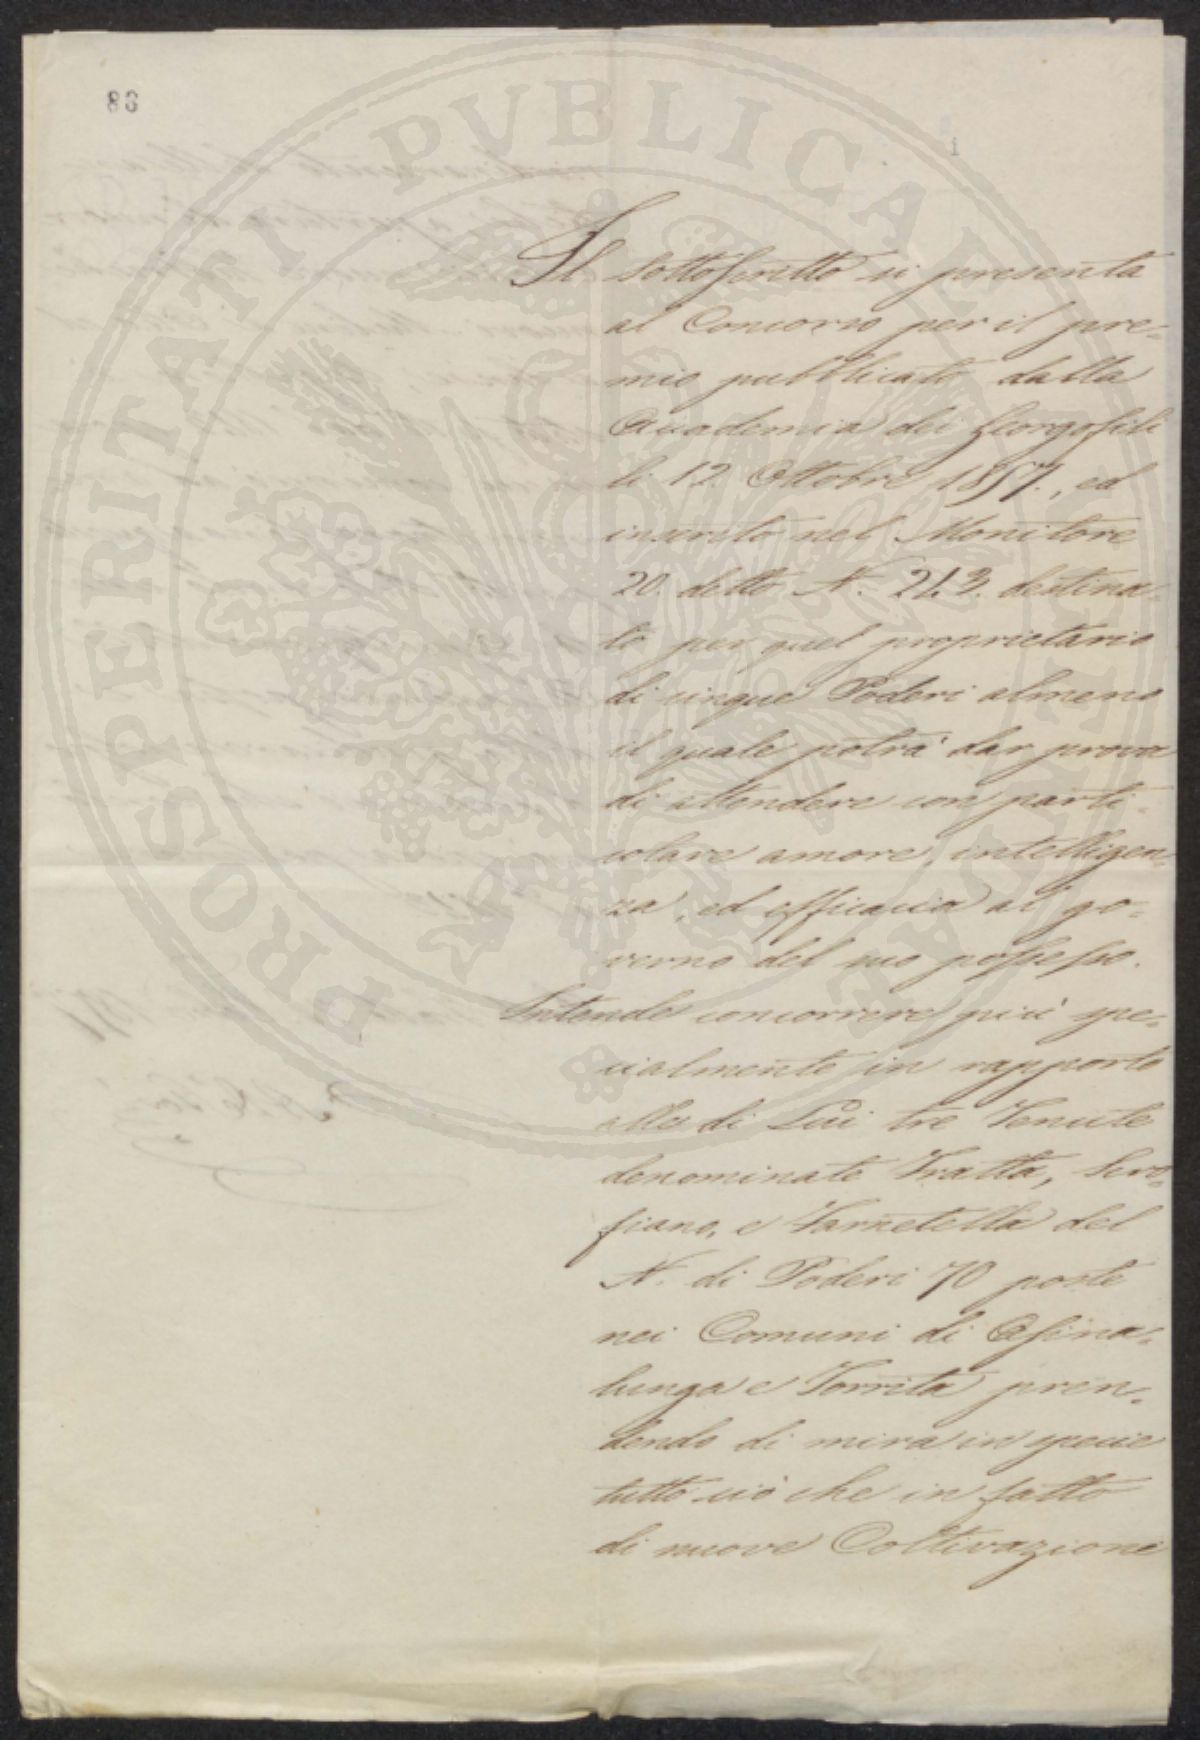 86
PROSPERITATI PVBLICAE AVGENDAE
1
Il sottoscritto si presenta
al Concorso per il pre=
mio pubblicato dalla
Accademia dei Georgofili
li 12. Ottobre 1857., ed
inserito nel Monitore
20. detto N. 243. destina=
to per quel proprietario
di cinque Poderi almeno
il quale potrà dar prova
di attendere con parti=
colare amore, intelligen=
za, ed efficacia al go=
verno del suo possesso.
Intende concorrere più spe=
cialmente in rapporto
alle di Lui tre Tenute
denominate Fratta, Scro=
fiano, e
del
N. di Poderi 70 poste
nei Comuni di Asina=
lunga e Torrita pren=
dendo di mira in specie
tutto ciò che in fatto
di nuove Coltivazioni